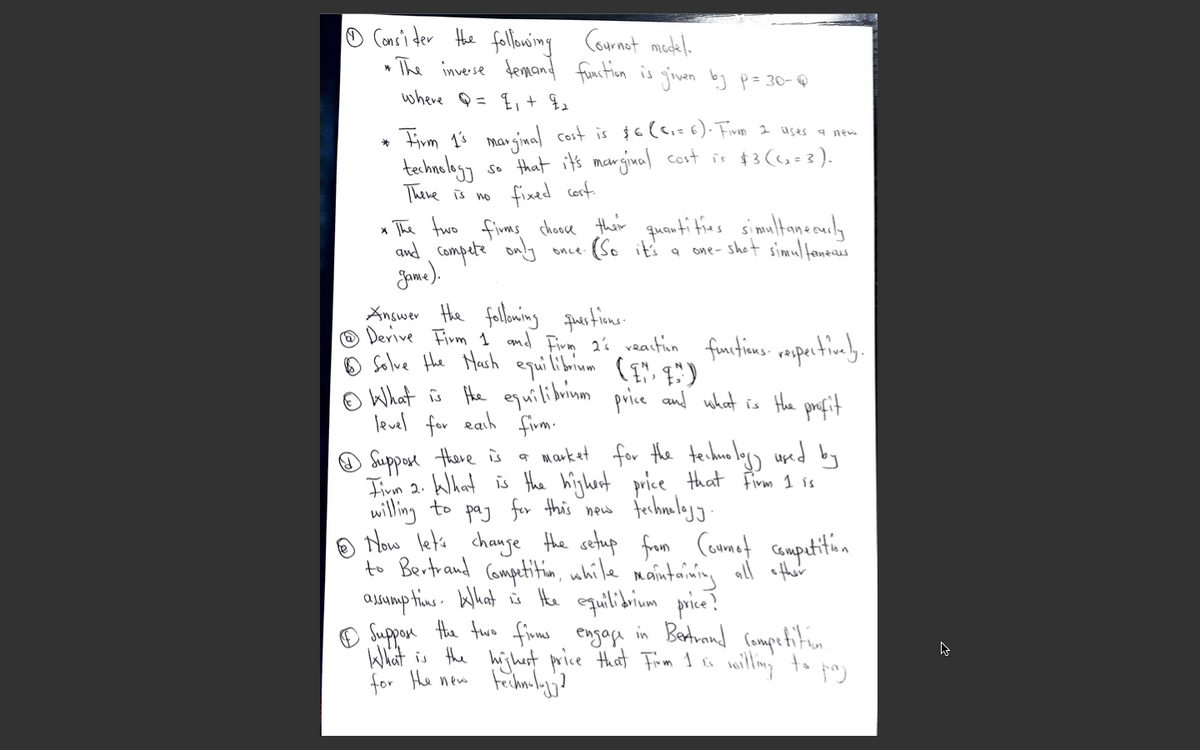 ① Consider the following Cournot model.
* The inverse demand function is given by p = 30-Q
where Q = q₁ + q₂
* Firm 1's marginal cost is $6 (c₁ = 6). Firm 2 uses a new
technology so that it's marginal cost is $3 (c₂ = 3).
There is no fixed cost.
* The two firms choose their quantities simultaneously
and compete only once. (So it's a one-shot simultaneous
game).
Answer the following questions.
ⓐ Derive Firm 1 and Firm 2's reaction functions respectively.
ⓑ Solve the Nash equilibrium (q₁ᴺ, q₂ᴺ)
ⓒ What is the equilibrium price and what is the profit
level for each firm.
ⓓ Suppose there is a market for the technology used by
Firm 2. What is the highest price that Firm 1 is
willing to pay for this new technology.
ⓔ Now let's change the setup from Cournot competition
to Bertrand Competition, while maintaining all other
assumptions. What is the equilibrium price?
ⓕ Suppose the two firms engage in Bertrand Competition
What is the highest price that Firm 1 is willing to pay
for the new technology?